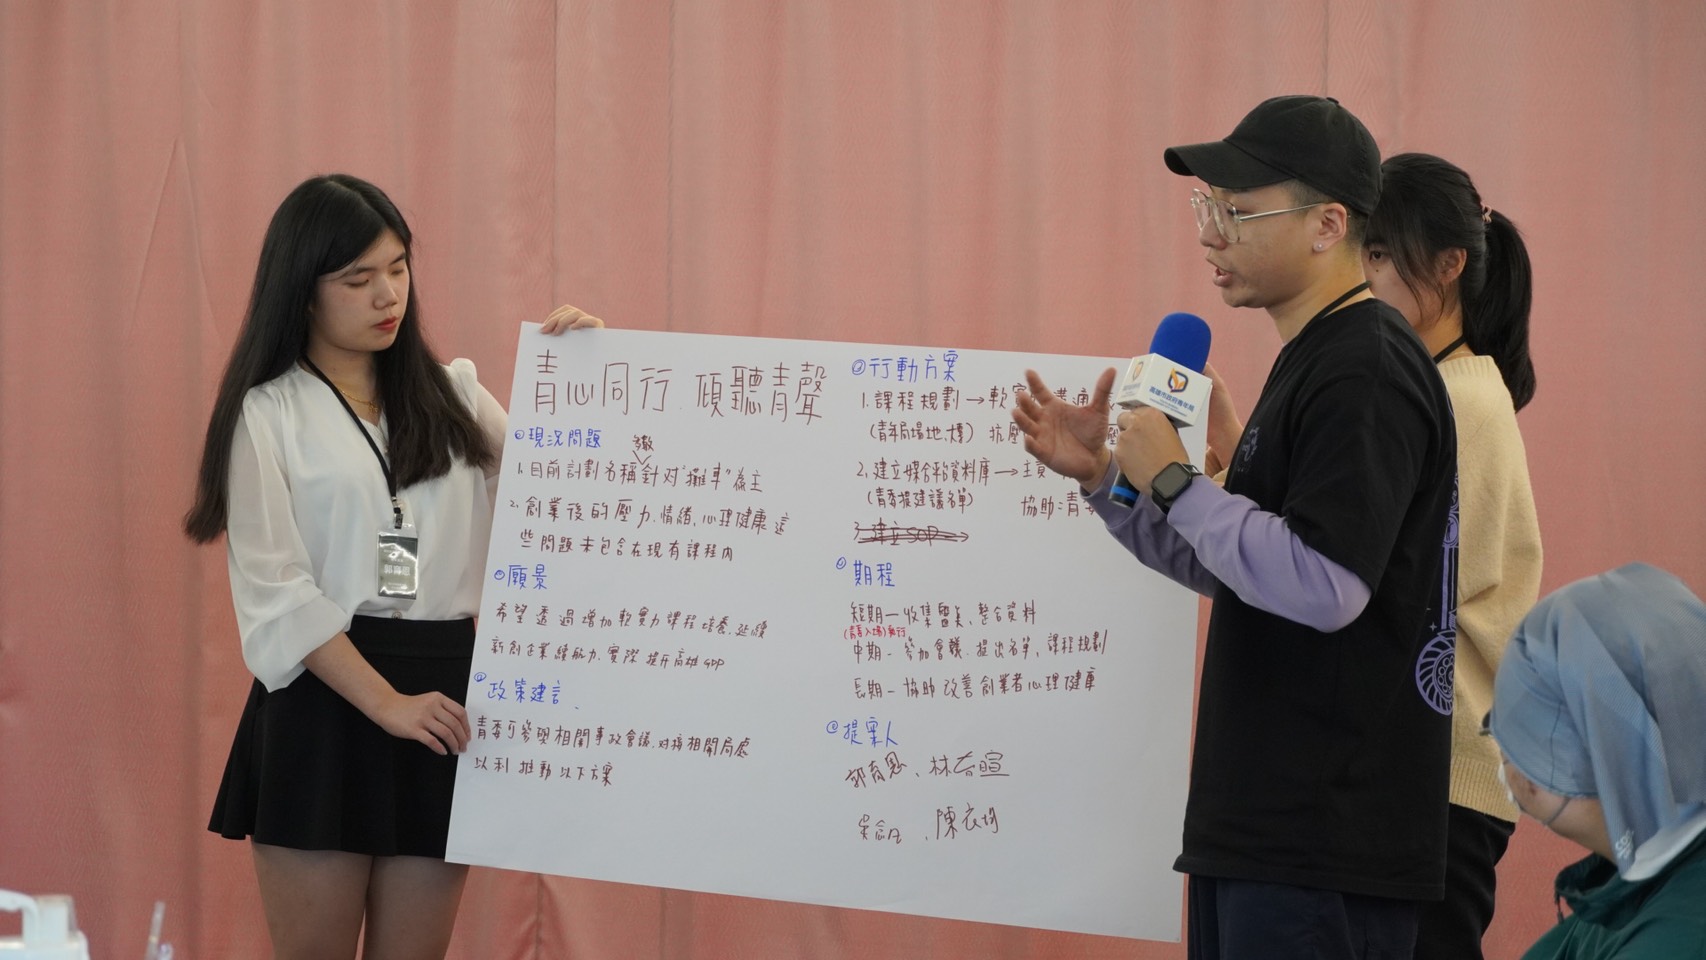 青心同行.傾聽青聲
①現況問題
多數
1.目前計劃名稱針对"攤車"為主
2.創業後的壓力.情緒.心理健康這
些問題未包含在現有課程內
願景
希望透過增加軟實力課程培養.延續
新創企業續航力.實際提升高雄GDP
政策建言
青委可參與相關事政會議.对接相關局處
以利推動以下方案
行動方案
1.課程規劃→軟實 溝通 表
(青年局場地、 ) 抗壓 壓
2.建立媒合平台資料庫→主責
(青委提建議名單) 協助:青委
3.建立SOP→
期程
短期—收集 、整合資料
(青委入場)執行
中期—參加會議.提出名單、課程規劃
長期—協助改善創業者心理健康
提案人
郭育恩、林春暄
吳念凡、陳衣均
高雄市政府青年局
郭育恩